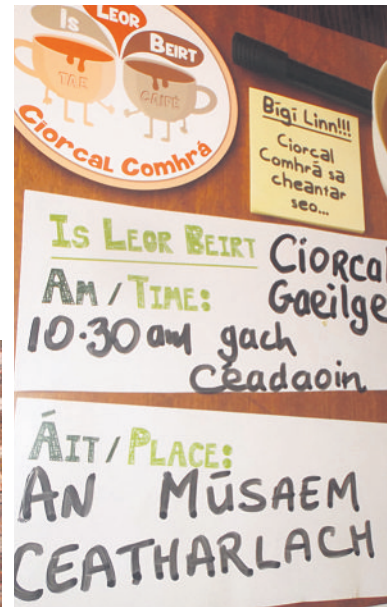 Is Leor Beirt
TAE
CAIFÉ
Ciorcal Comhrá
Bígí Linn!!!
Ciorcal
Comhrá sa
cheantar
seo...
IS LEOR BEIRT
Ciorcal
Gaeilge
AM / TIME:
10.30am gach
Céadaoin
ÁIT / PLACE:
AN MÚSAEM
CEATHARLACH